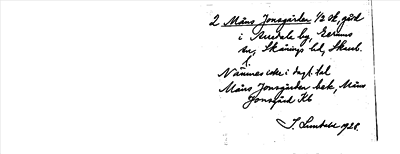 2 Måns Jonsgården 1/2 sk, gård
i Arndala by, Eriums
sn, Skånings hd, Skarab.
l.
Nämnes icke i dagl. tal
Måns Jonsgården bek, Måns
Jonsgård Kb
J. Lundahl 1928.